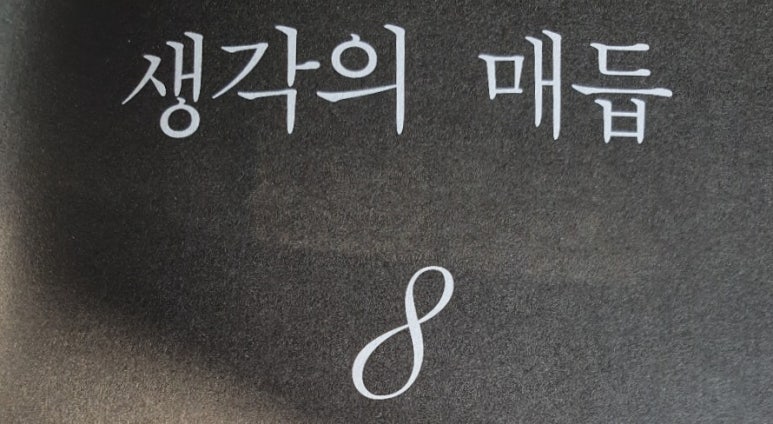 생각의 매듭
8